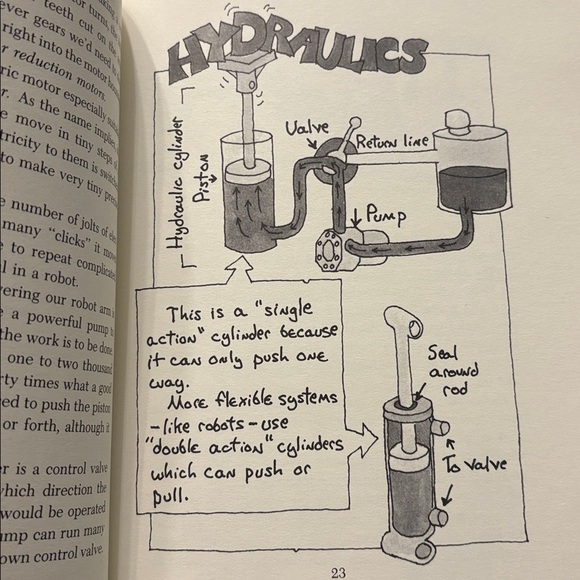 teeth cut on the
ever gears we'd need
right into the motor
r reduction motors.
ric motor especially
r. As the name implies,
e move in tiny steps
tricity to them is
to make very tiny
e number of jolts of
many "clicks" it
e to repeat
l in a robot.
ering our robot arm
e a powerful pump
the work is to be done
one to two thousand
rty times what a good
ed to push the piston
or forth, although it
er is a control valve
hich direction the
would be operated
mp can run many
own control valve.
HYDRAULICS
Hydraulic cylinder
Piston
Valve
Return line
Pump
This is a "single
action" cylinder because
it can only push one
way.
More flexible systems
-like robots- use
"double action" cylinders
which can push or
pull.
Seal
around
rod
To valve
23